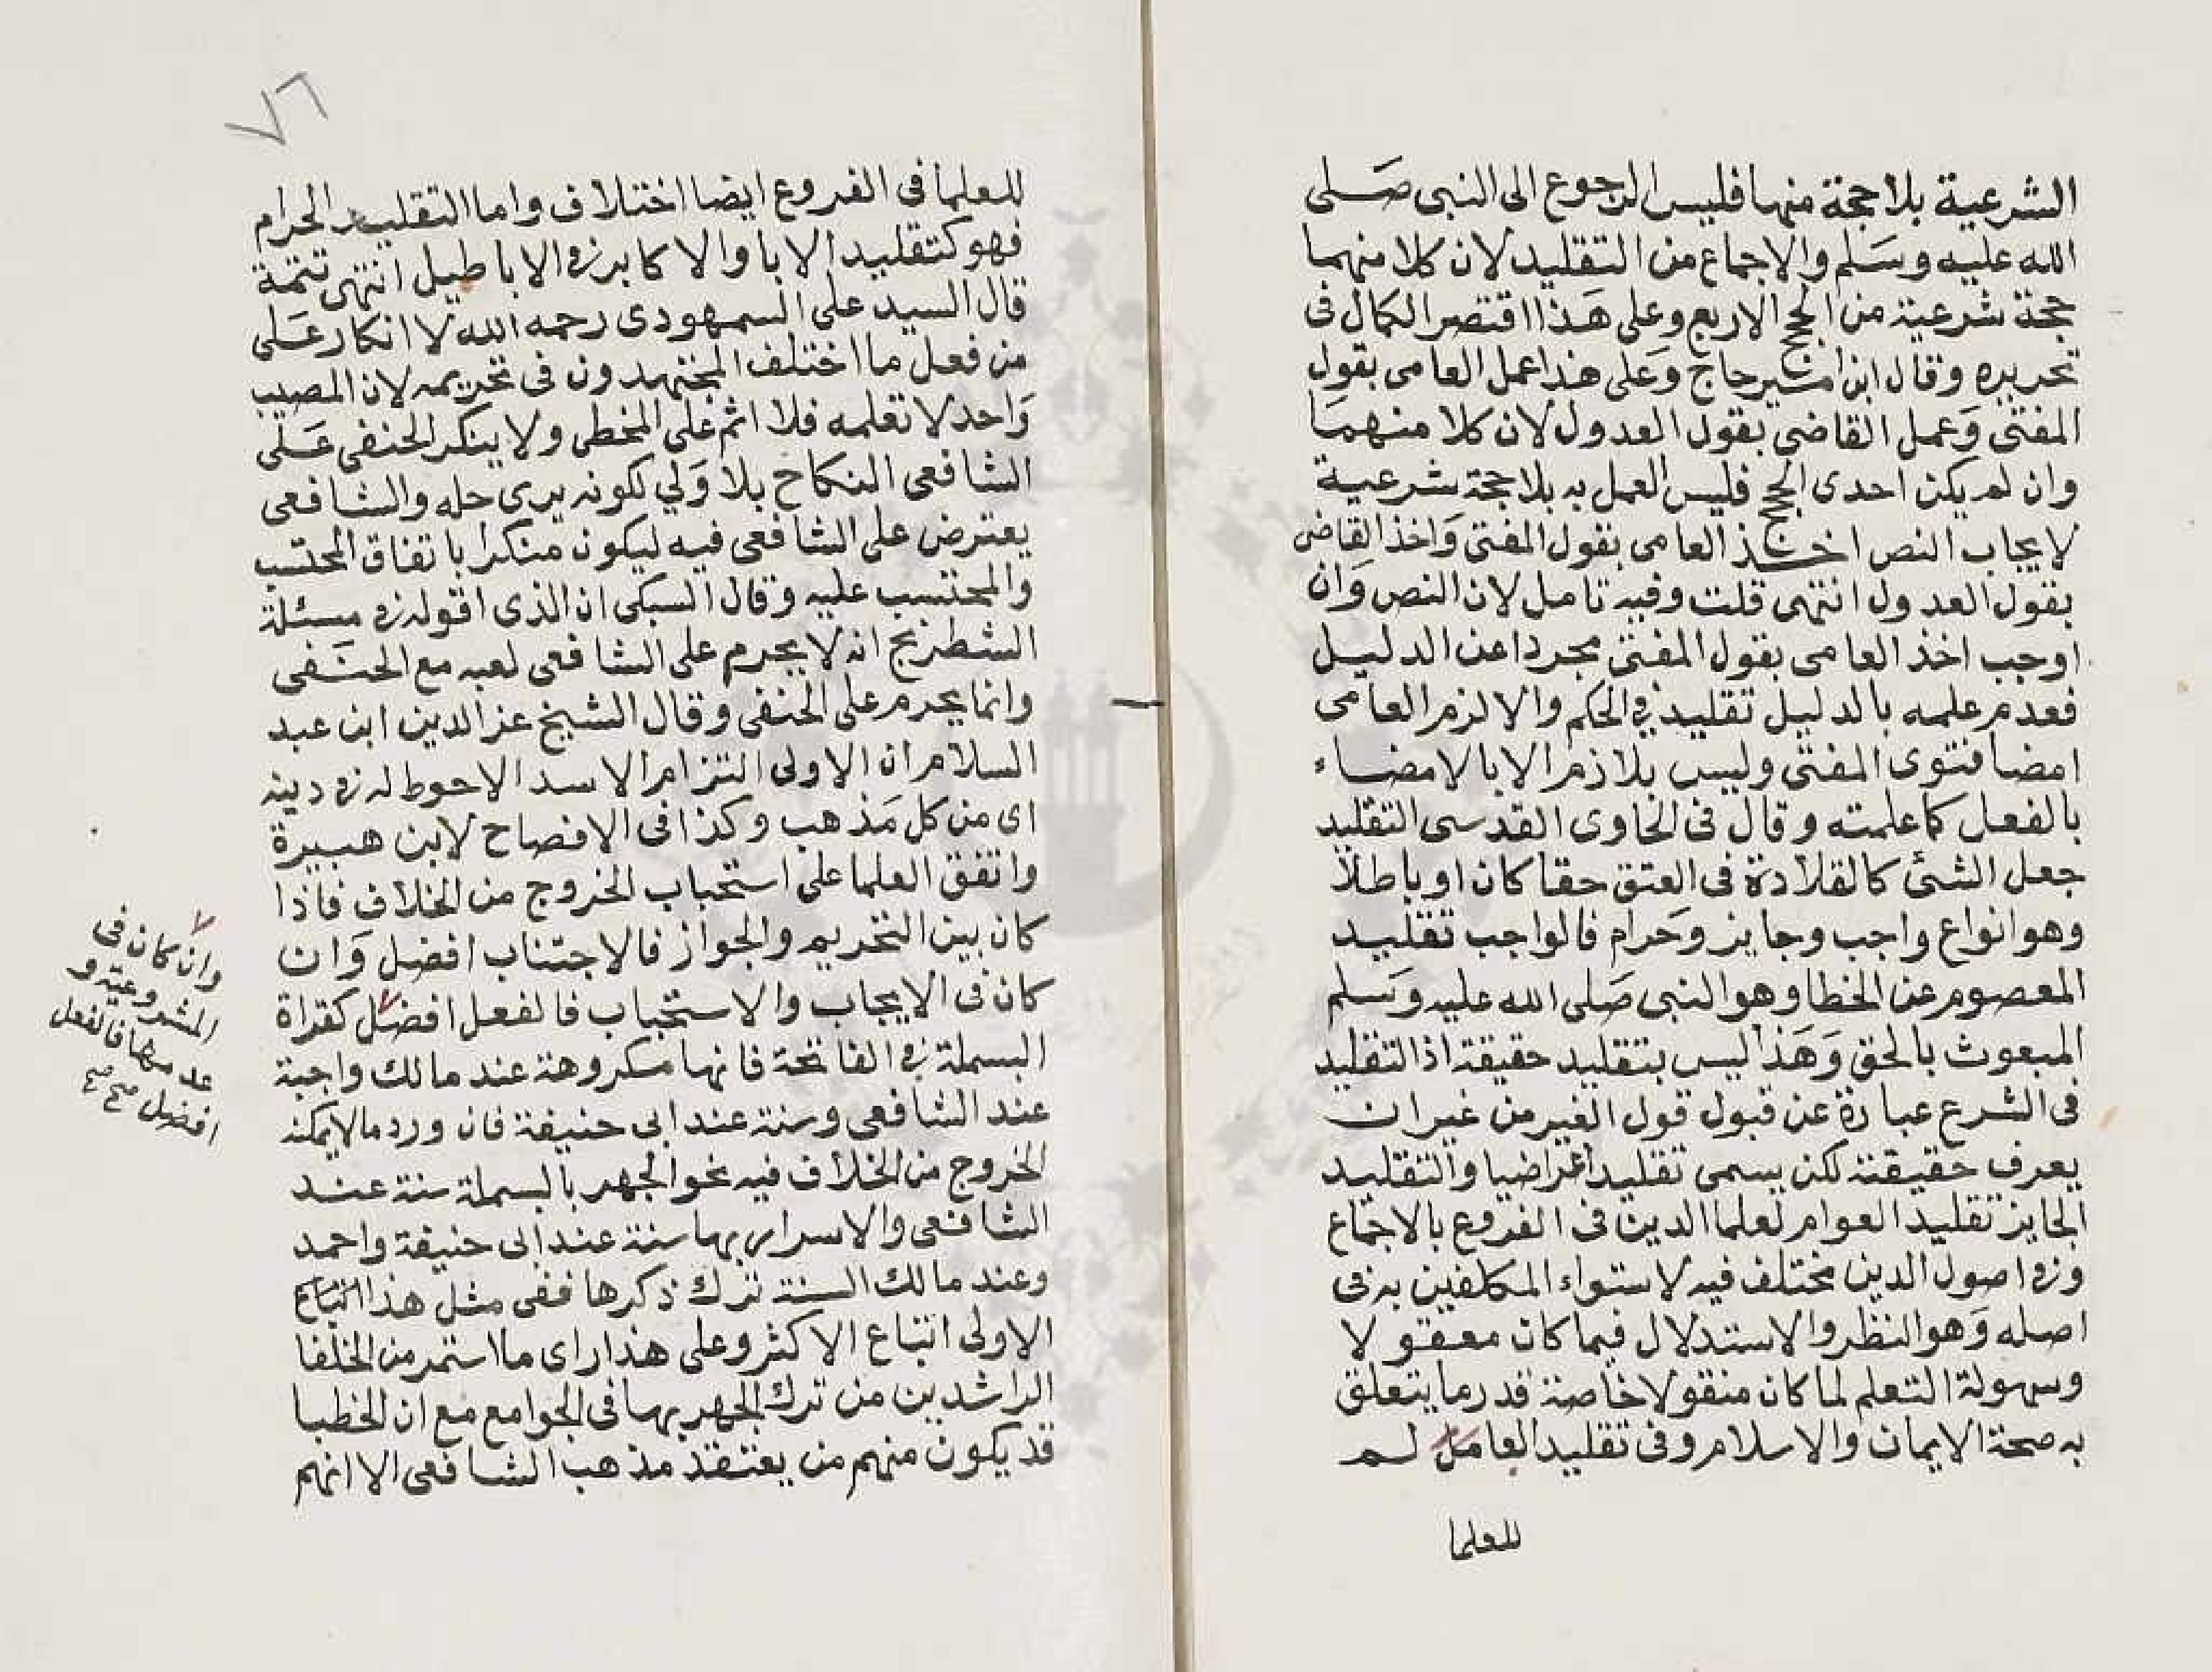 الشرعية بلا حجة منها فليس الرجوع الى النبي صلى
الله عليه وسلم والاجماع من التقليد لان كلا منهما
حجة شرعية من الحجج الاربع وعلى هذا اقتصر الكمال فى
تحريره وقال ابن امير حاج وعلى هذا عمل العامى بقول
المفتى وعمل القاضى بقول العدول لان كلا منهما
وان لم يكن احدى الحجج فليس العمل به بلا حجة شرعية
لايجاب النص اخذ العامى بقول المفتى واخذ القاضى
بقول العدول انتهى قلت وفيه تامل لان النص وان
اوجب اخذ العامى بقول المفتى مجردا عن الدليل
فعدم علمه بالدليل تقليد فى الحكم والا لزم العامى
امضا فتوى المفتى وليس بلازم الا بالامضاء
بالفعل كما علمته وقال فى الحاوى القدسى التقليد
جعل الشئ كالقلادة فى العتق حقا كان او باطلا
وهو انواع واجب وجايز وحرام فالواجب تقليد
المعصوم عن الخطا وهو النبى صلى الله عليه وسلم
المبعوث بالحق وهذا ليس بتقليد حقيقة اذ التقليد
فى الشرع عبارة عن قبول قول الغير من غير ان
يعرف حقيقته لكن يسمى تقليدا والتقليد
الجايز تقليد العوام لعلما الدين فى الفروع بالاجماع
وفى اصول الدين مختلف فيه لاستواء المكلفين به فى
اصله وهو النظر والاستدلال فيما كان معقولا
وسهولة التعلم لما كان منقولا خاصة قدر ما يتعلق
به صحة الايمان والاسلام وفى تقليد العامل لم
للعلما
٧٦
للعلما فى الفروع ايضا اختلاف واما التقليد الحرام
فهو كتقليد الابا والاكابر فى الاباطيل انتهى تتمة
قال السيد على السمهودى رحمه الله لا انكار على
من فعل ما اختلف المجتهدون فى تحريمه لان المصيب
واحد لا نعلمه فلا اثم على المخطى ولا ينكر الحنفى على
الشافعى النكاح بلا ولي لكونه يرى حله والشافعى
يعترض على الشافعى فيه ليكون منكرا باتفاق المحتسب
والمحتسب عليه وقال السبكى ان الذى اقوله فى مسئلة
الشطرنج انه لا يحرم على الشافعى لعبه مع الحنفى
وانما يحرم على الحنفى وقال الشيخ عز الدين ابن عبد
السلام ان الاولى التزام الاسد الاحوط له فى دينه
اى من كل مذهب وكذا فى الافصاح لابن هبيرة
واتفق العلما على استحباب الخروج من الخلاف فاذا
كان بين التحريم والجواز فالاجتناب افضل وان
كان فى الايجاب والاستحباب فالفعل افضل كقراة
البسملة فى الفاتحة فانها مكروهة عند مالك واجبة
عند الشافعى وسنة عند ابى حنيفة فان ورد مالا يمكنه
الخروج من الخلاف فيه نحو الجهر بالبسملة سنة عند
الشافعى والاسرار بها سنة عند ابى حنيفة واحمد
وعند مالك السنة ترك ذكرها ففى مثل هذا اتباع
الاولى اتباع الاكثر وعلى هذا راى ما استمر من الخلفا
الراشدين من ترك الجهر بها فى الجوامع مع ان الخطبا
قد يكون منهم من يعتقد مذهب الشافعى الا انهم
وان كان فى
المشروعية و
عدمها فالفعل
افضل صح صح